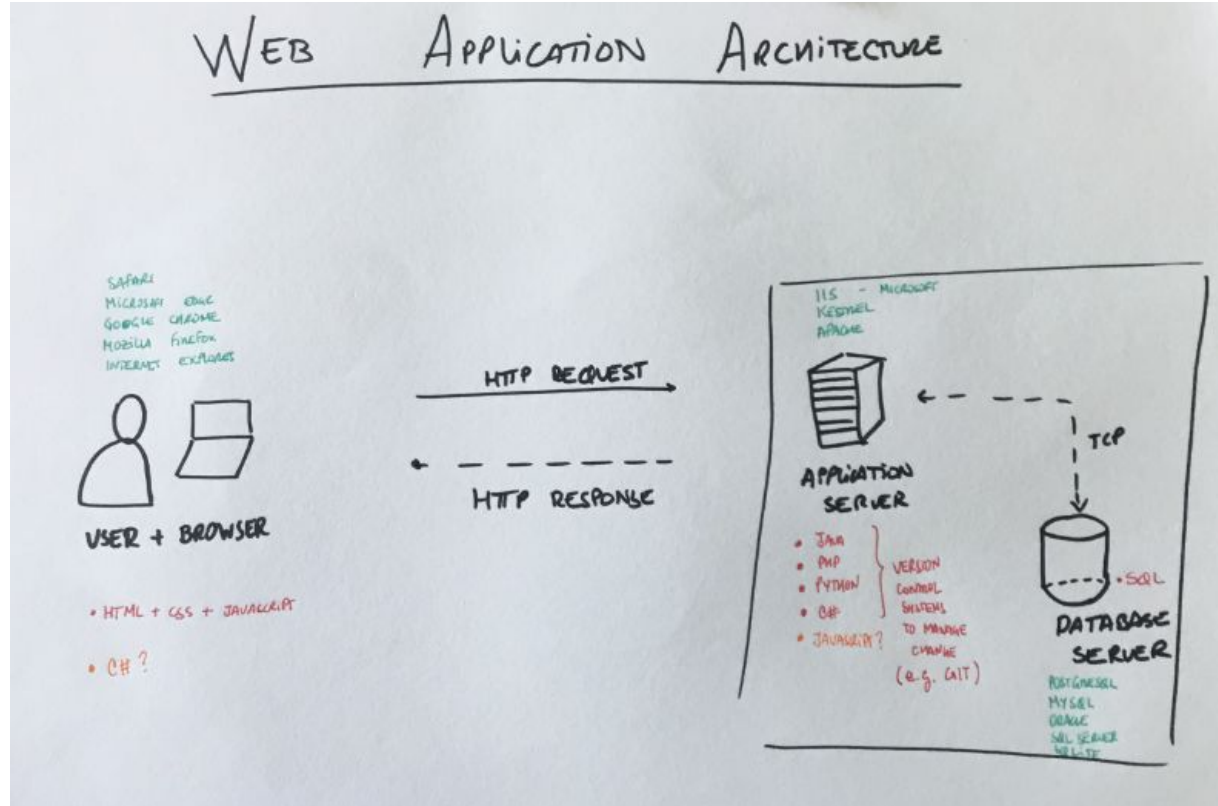 WEB APPLICATION ARCHITECTURE
SAFARI
MICROSOFT EDGE
GOOGLE CHROME
MOZILLA FIREFOX
INTERNET EXPLORER
USER + BROWSER
• HTML + CSS + JAVASCRIPT
• C# ?
HTTP REQUEST
HTTP RESPONSE
IIS - MICROSOFT
KESTREL
APACHE
APPLICATION
SERVER
• JAVA
• PHP
• PYTHON
• C#
• JAVASCRIPT?
VERSION
CONTROL
SYSTEMS
TO MANAGE
CHANGE
(e.g. GIT)
TCP
• SQL
DATABASE
SERVER
POSTGRESQL
MYSQL
ORACLE
SQL SERVER
SQLITE